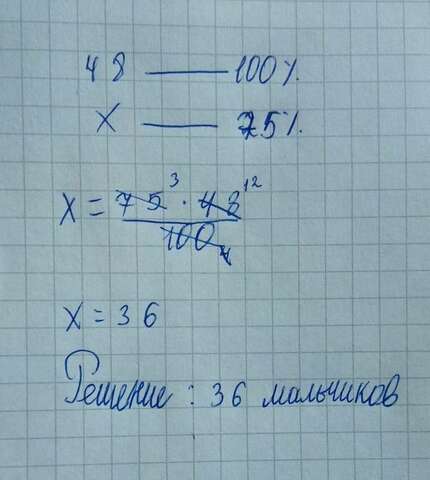 48 — 100%
x — 75%
x = 75 3 · 48 12
100 4
x = 36
Решение : 36 мальчиков